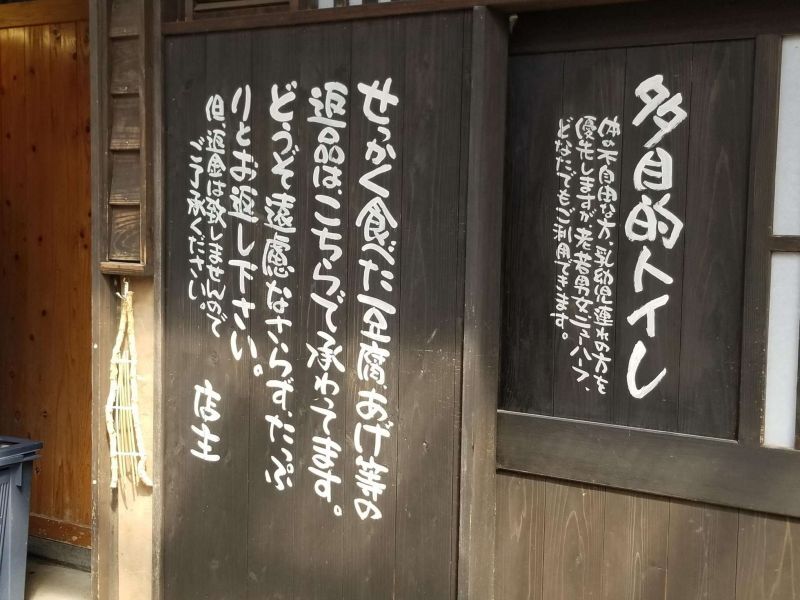 多目的トイレ
体の不自由な方、乳幼児連れの方を
優先しますが、老若男女、ニューハーフ、
どなたでもご利用できます。
せっかく食べた豆腐あげ等の
返品は、こちらで承わってます。
どうぞ遠慮なさらず、たっぷ
りとお返し下さい。
但、返金は致しませんので
ご了承ください。
店主